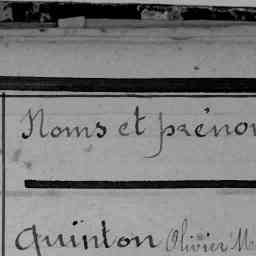 Noms et préno
Quinton Olivier M